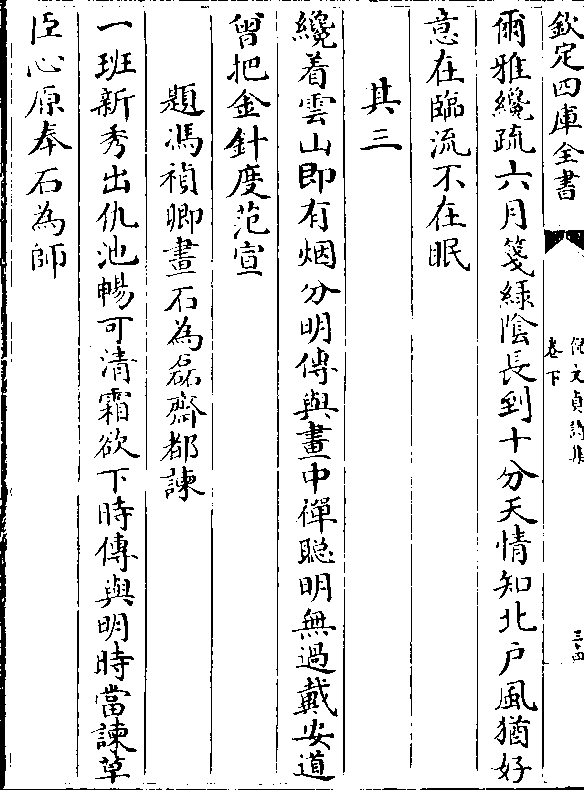 欽定四庫全書
倪文貞詩集
卷下
三古
爾雅纔疏六月箋綠陰長到十分天情知北戶風猶好
意在臨流不在眠
其三
纔着雲山即有烟分明傳與畫中禪聡明無過戴安道
曾把金針度范宣
題馮楨卿畫石為磊齋都諫
一班新秀出仇池暢可清霜欲下時傳與明時當諫草
臣心原奉石為師